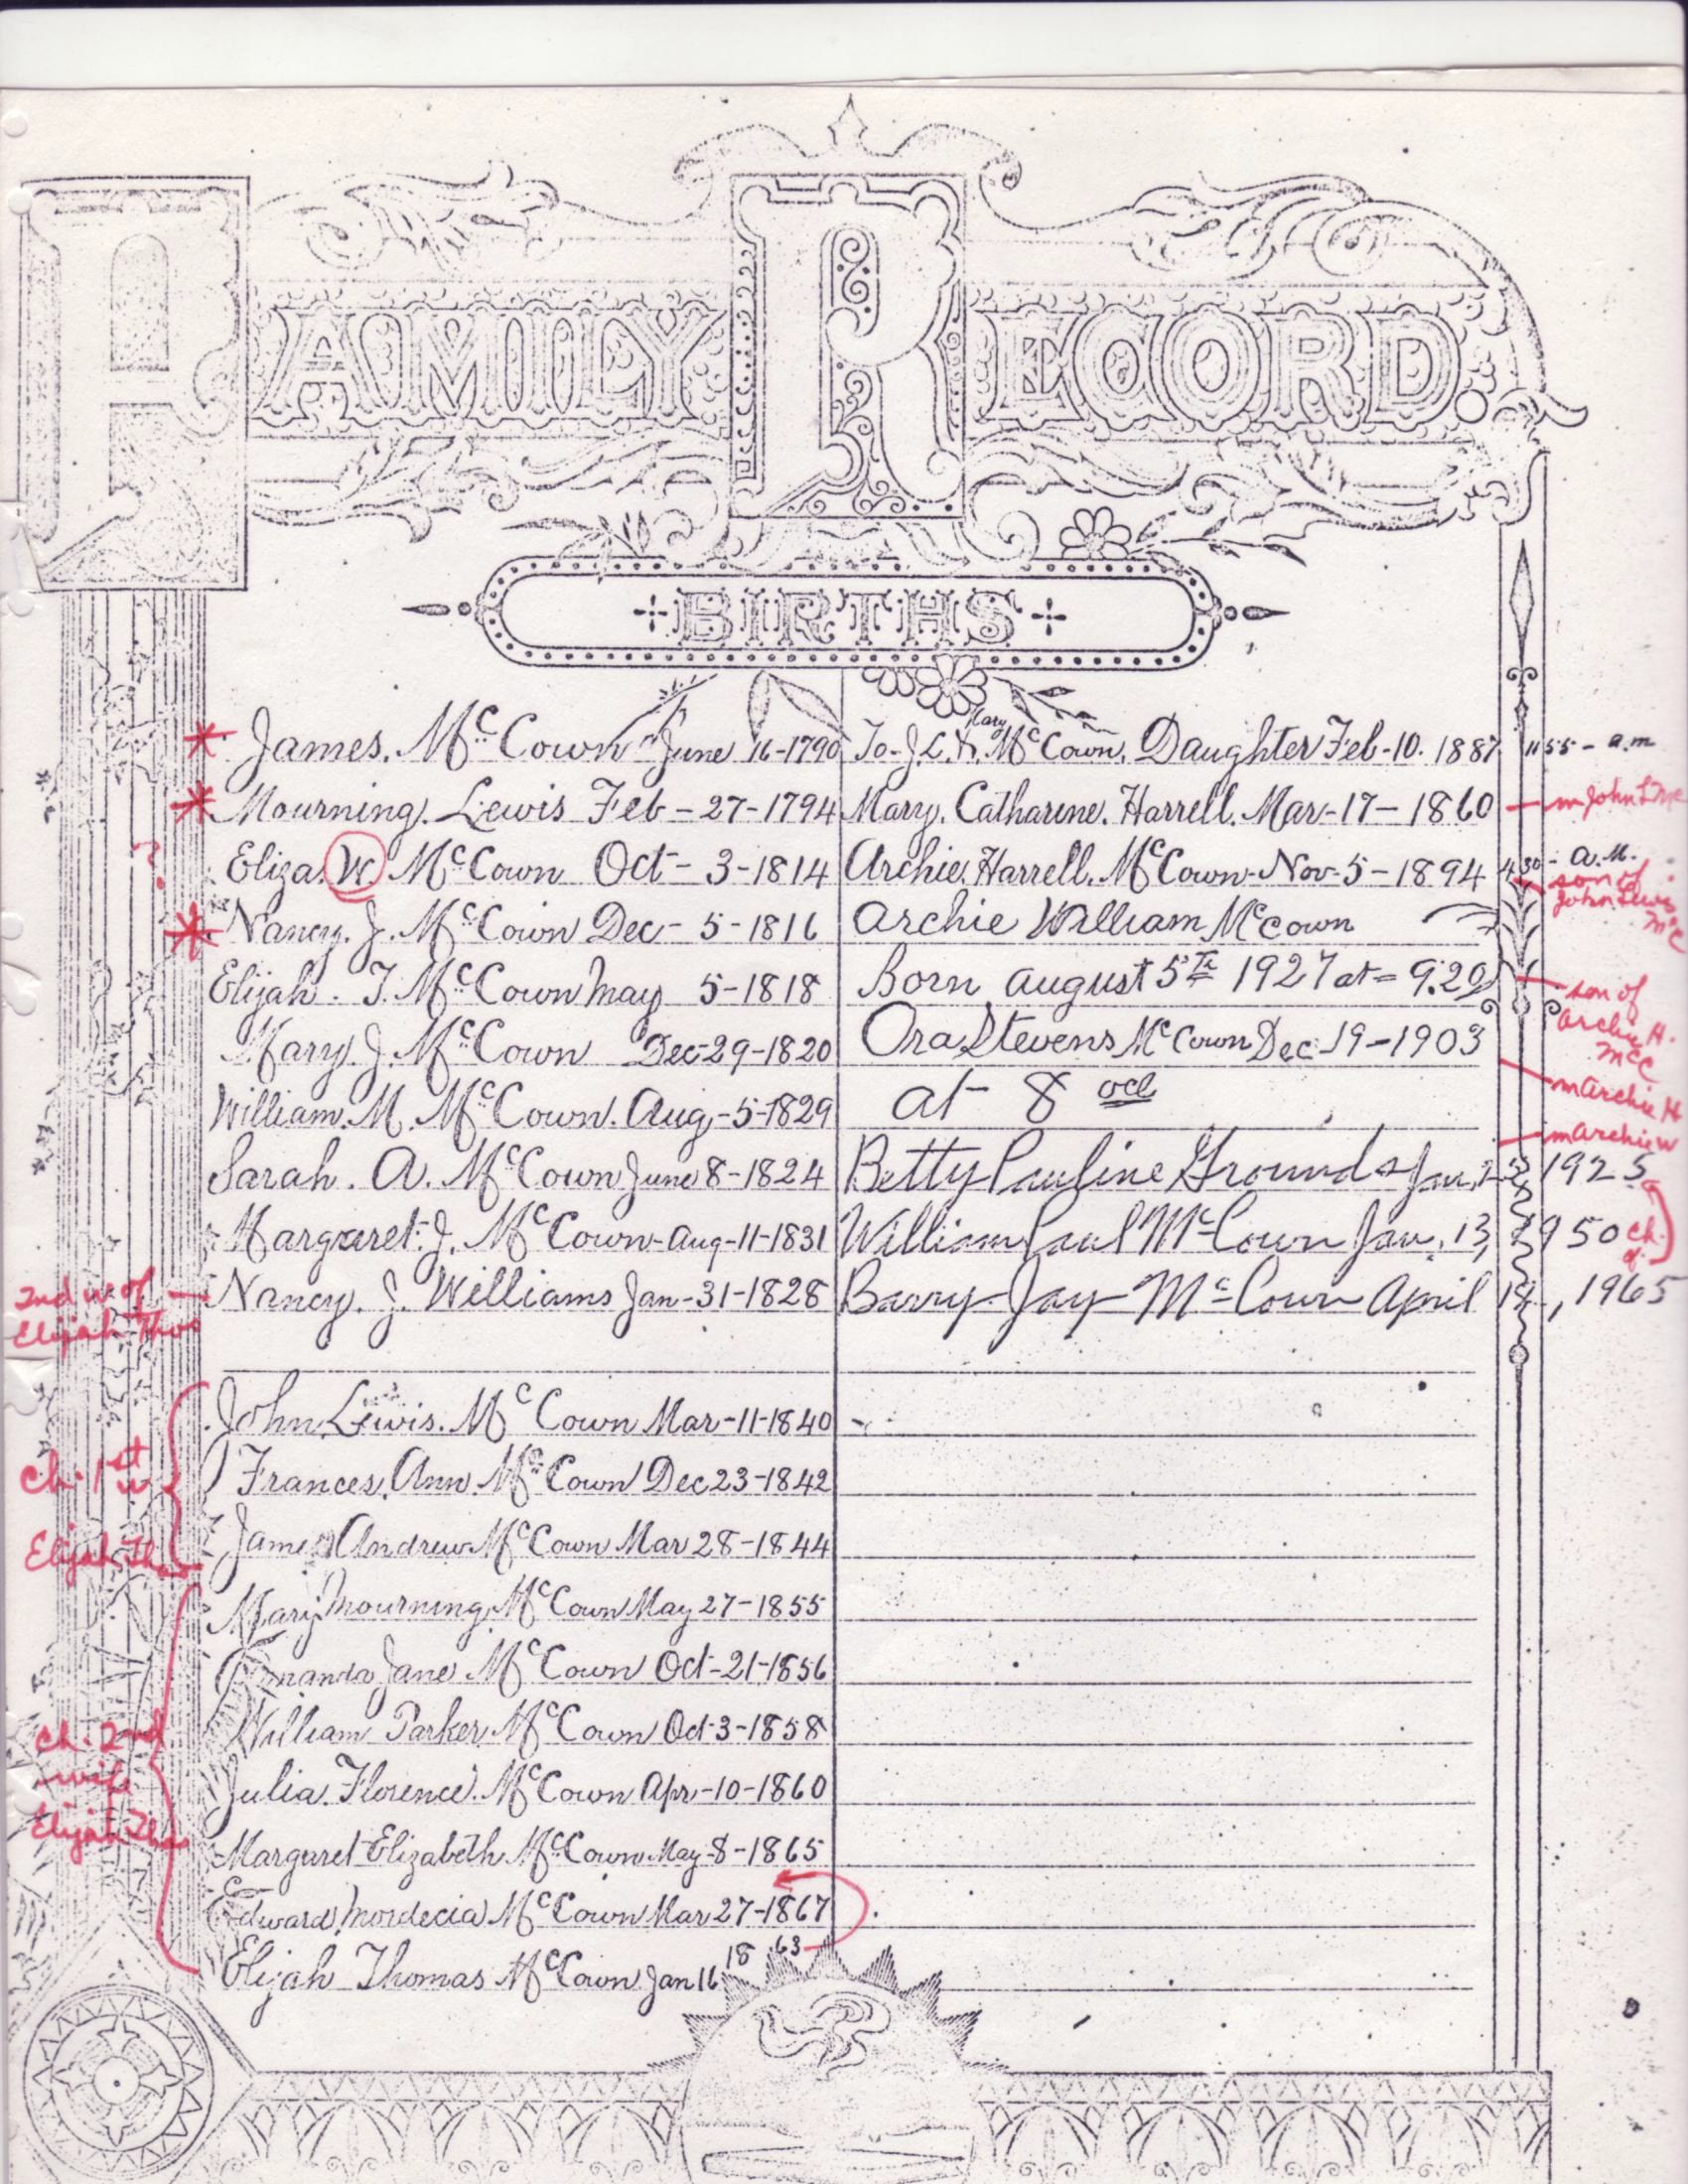 FAMILY RECORD.
BIRTHS
* James. McCown June 16-1790
* Mourning. Lewis Feb-27-1794
? Eliza. W. McCown Oct-3-1814
* Nancy. J. McCown Dec-5-1816
Elijah. T. McCown May 5-1818
Mary. J. McCown Dec-29-1820
William. M. McCown. Aug-5-1829
Sarah. A. McCown June 8-1824
Margaret. J. McCown-Aug-11-1831
2nd w. of Elijah Thos
Nancy. J. Williams Jan-31-1828
ch. 1st w
Elijah Th
John Lewis. McCown Mar-11-1840
Frances. Ann. McCown Dec 23-1842
James Andrew McCown Mar 28-1844
ch. 2nd
wife
Elijah Tho
Mary Mourning McCown May 27-1855
Amanda Jane McCown Oct-21-1856
William Parker McCown Oct-3-1858
Julia. Florence. McCown Apr-10-1860
Margaret Elizabeth McCown May-8-1865
Edward Mordecia McCown Mar 27-1867
Elijah Thomas McCown Jan 16 1863
To-J.L. & Mary McCown. Daughter Feb-10. 1887 11 55 - a.m
Mary. Catharine. Harrell. Mar-17-1860
Archie. Harrell. McCown-Nov-5-1894 4 30 - A.M.
son of
John Lewis
McC
Archie William McCown
Born august 5th 1927 at = 9.20
son of
Archie H.
McC
Ora Stevens McCown Dec 19-1903
at - 8 ocl
m Archie H
m Archie W
Betty Pauline Grounds Jan, 1925
William Paul McCown Jan. 13, 1950
ch. of
Barry Jay McCown April , 1965